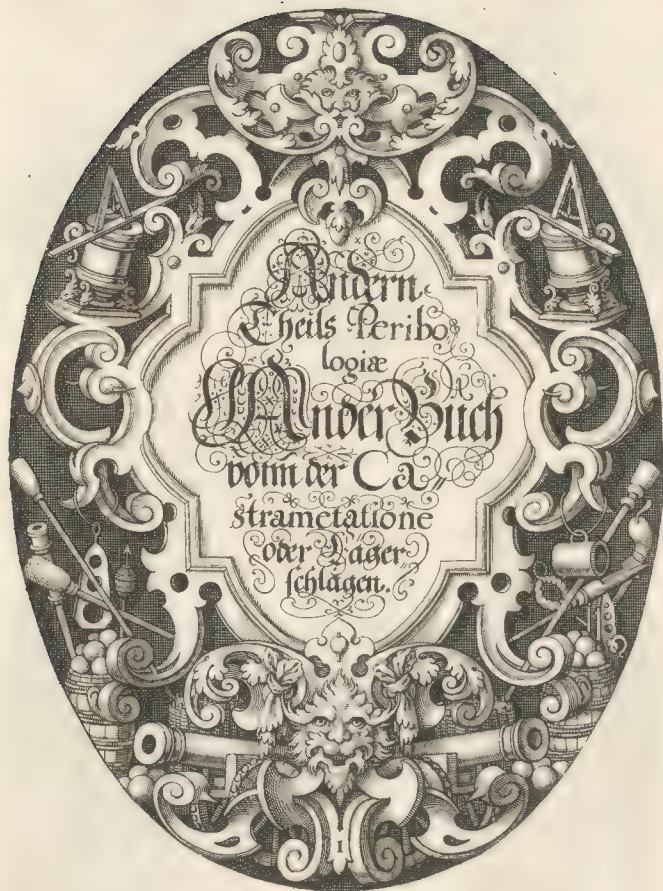 Andern
Theils Peribo⸗
logiæ
Ander Buch
vonn der Ca⸗
strametatione
oder Läger⸗
schlägen.
I